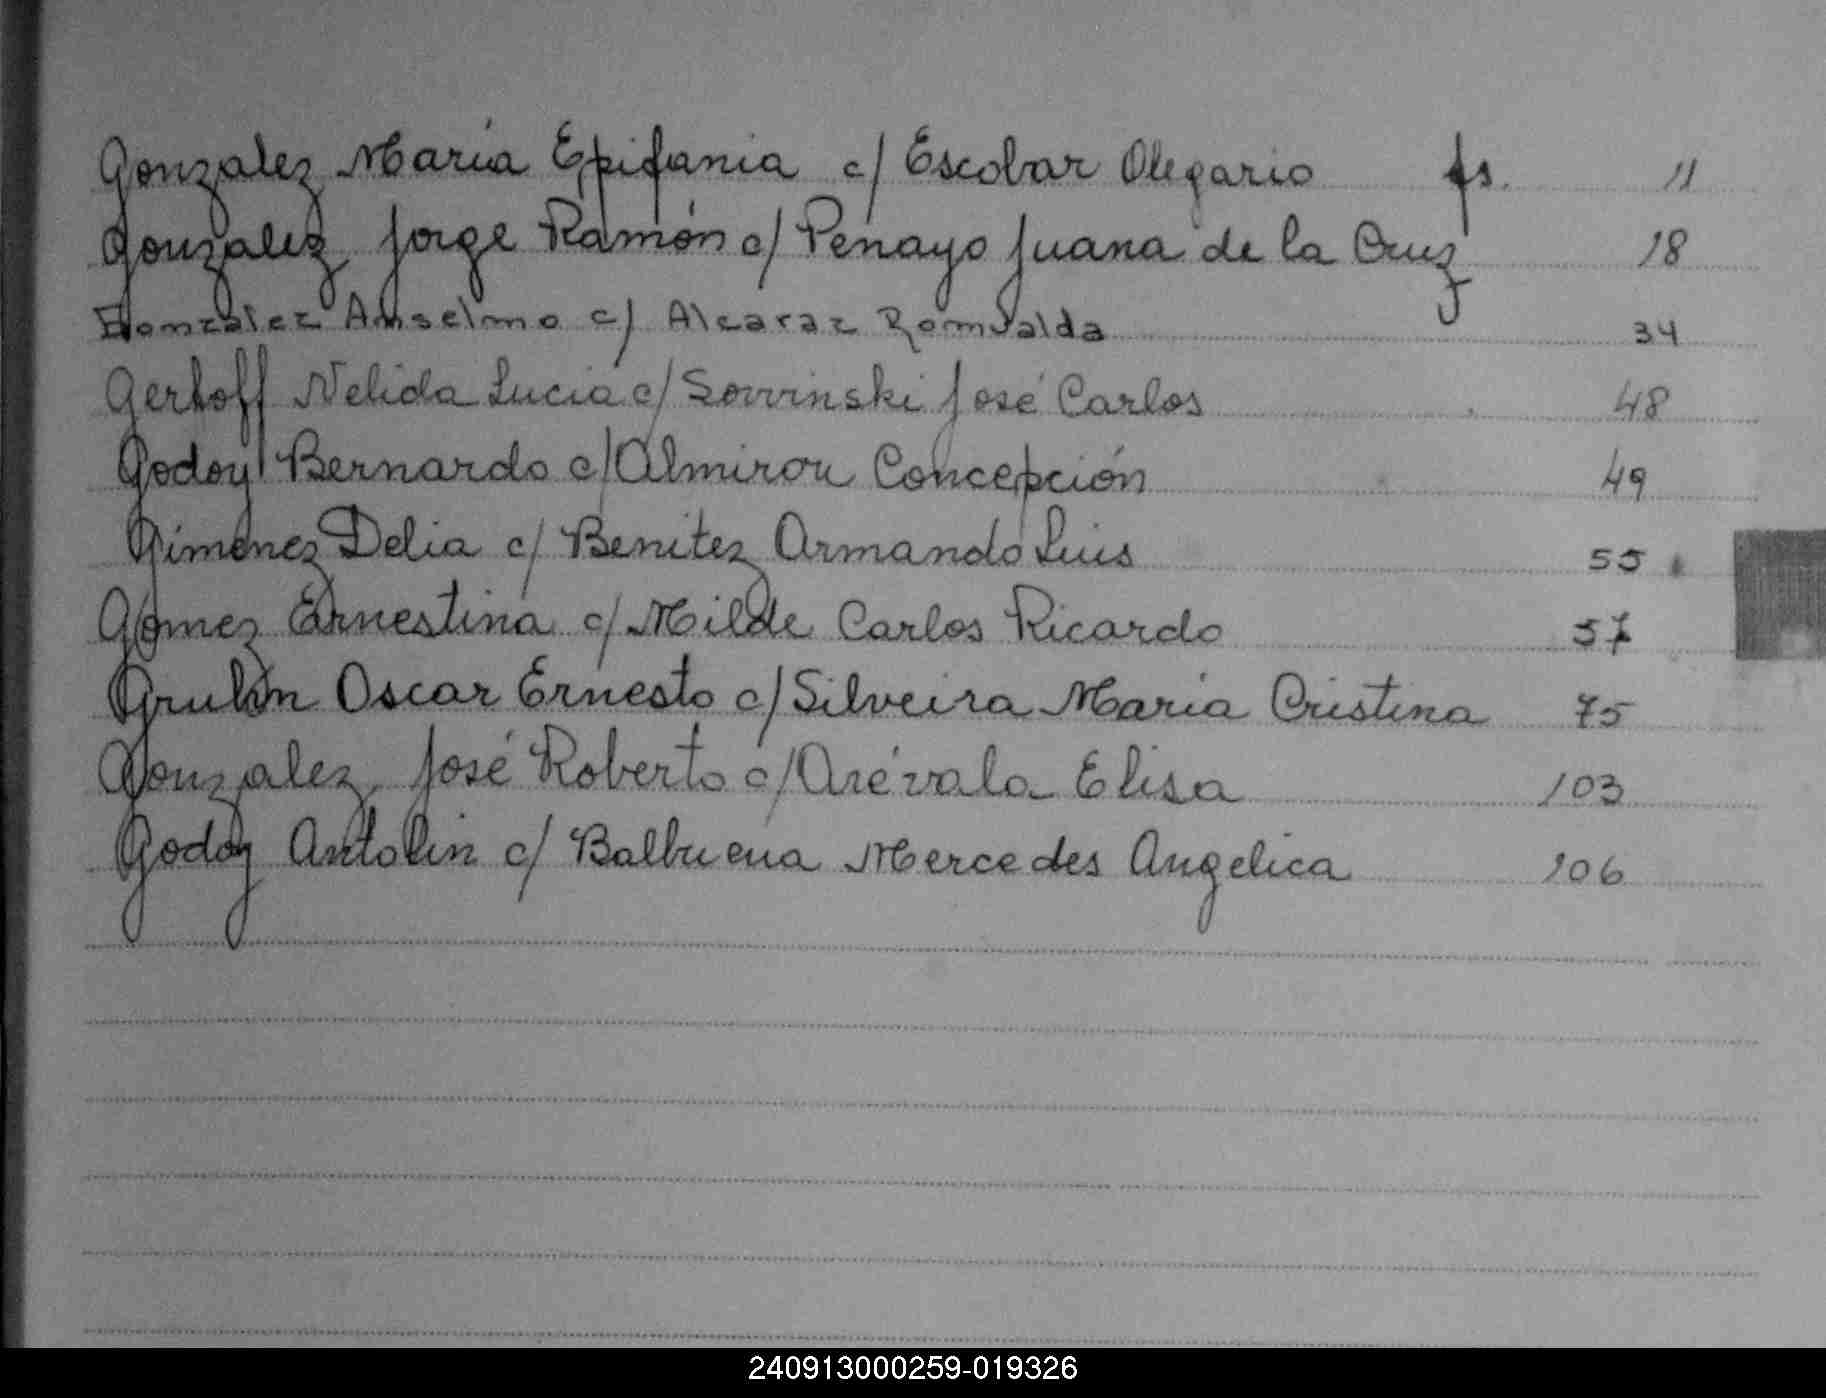 Gonzalez María Epifania c/ Escobar Olegario fs. 11
Gonzalez Jorge Ramón c/ Penayo Juana de la Cruz 18
Gonzalez Anselmo c/ Alcaraz Romualda 34
Gerhoff Nelida Lucia c/ José Carlos 48
Godoy Bernardo c/ Almiron Concepción 49
Gimenez Delia c/ Benitez Armando Luis 55
Gomez Ernestina c/ Milde Carlos Ricardo 57
Oscar Ernesto c/ Silveira María Cristina 75
Gonzalez, José Roberto c/ Arévalo Elisa 103
Godoy Antolin c/ Balbuena Mercedes Angelica 106
240913000259-019326